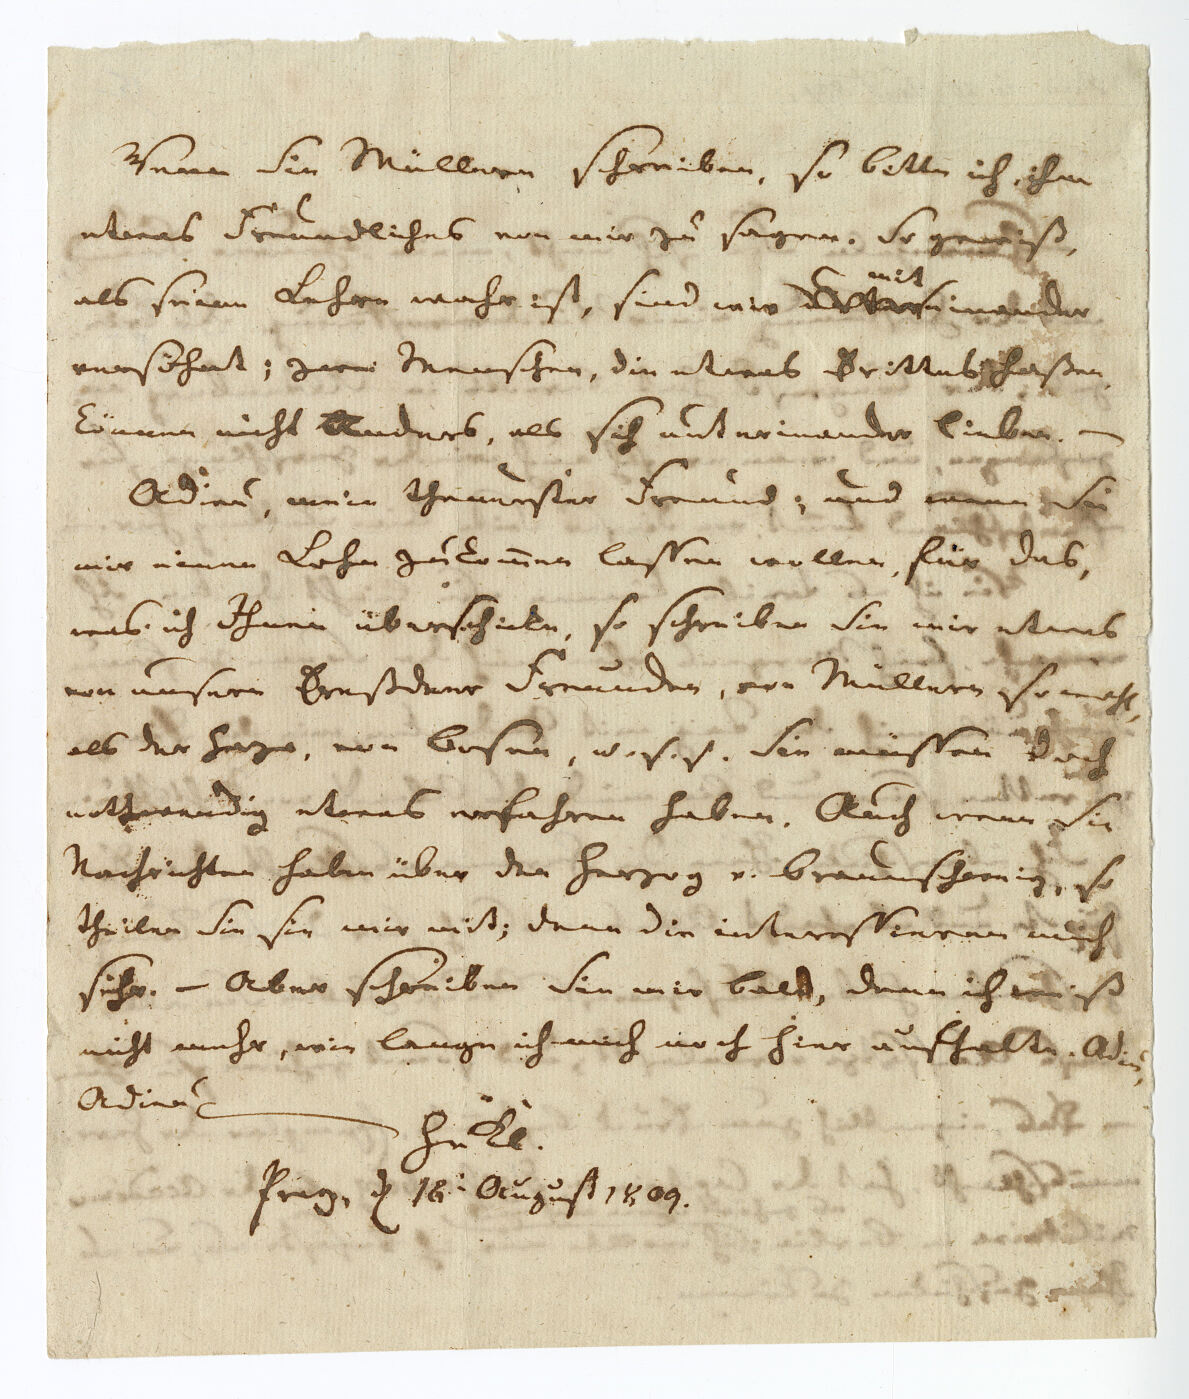 Wenn Sie Müllern schreiben, so bitte ich, ihm
etwas Freundliches von mir zu sagen. So gewiß,
als seine Lehre wahr ist, sind wir mit einander
versöhnt; zwei Menschen, die etwas Drittes haßen,
können nicht anders, als sich unter einander lieben. —
Adieu, mein theuerster Freund; und wenn Sie
mir einen Lohn zukom̄en lassen wollen, für das,
was ich Ihnen überschicke, so schreiben Sie mir etwas
von unsern Dreßdner Freunden, von Müllern so wohl,
als der Haza, von Bosen, u. s. f. Sie müssen doch
nothwendig etwas erfahren haben. Auch wenn Sie
Nachrichten haben über den Herzog v. Braunschweig, so
theilen Sie sie mir mit; denn die interessieren mich
sehr. — Aber schreiben Sie mir bald, denn ich weiß
nicht mehr, wie lange ich mich noch hier aufhalte. Adieu,
Adieu
Prag, d 18. August 1809.